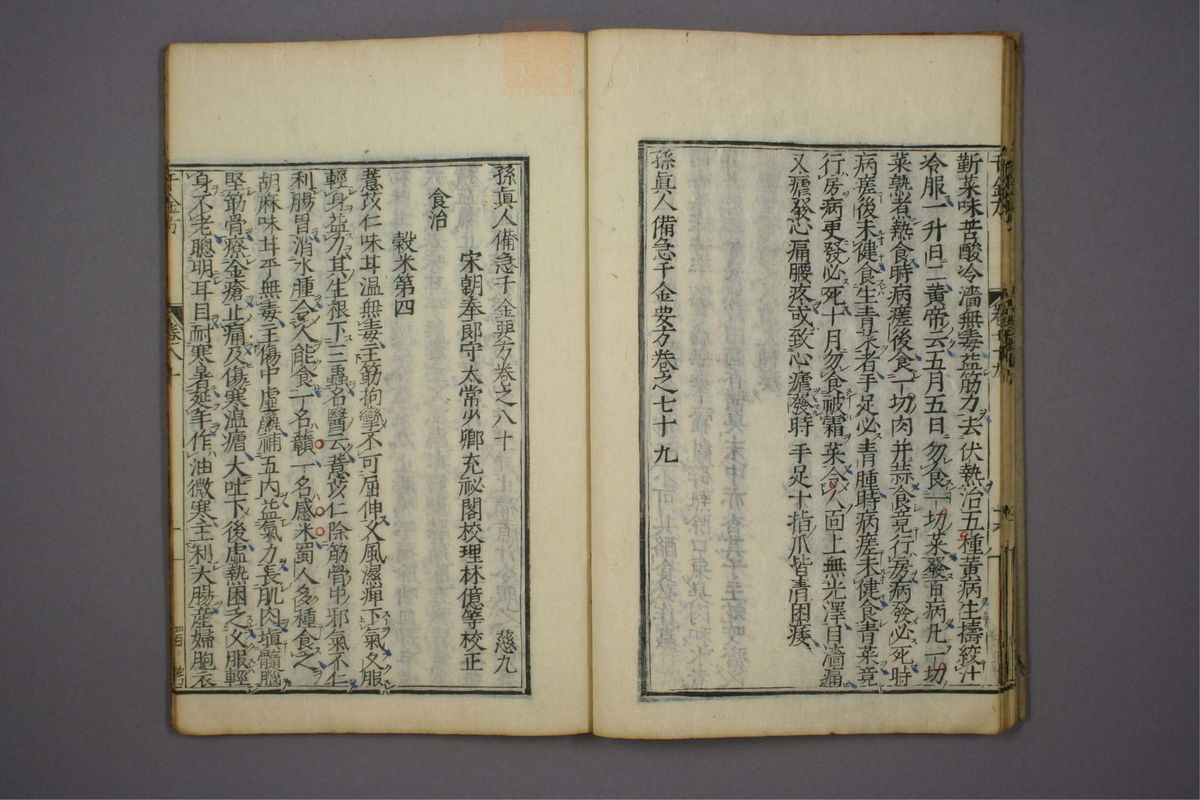 千金方 卷七十九 十六
蘄菜味苦酸冷濇無毒益筋力去伏熱治五種黃病生擣絞汁
冷服一升日二黃帝云五月五日勿食一切菜發百病凡一切
菜熟煮熱食時病瘥後食一切肉并蒜食竟行房病發必死時
病瘥後未健食生青菜者手足必青腫時病瘥未健食青菜竟
行房病更發必死十月勿食被霜菜令人面上無光澤目濇痛
又瘧發心痛腰疼或致心瘧發時手足十指爪皆青困痿
孫真人備急千金要方卷之七十九
孫真人備急千金要方卷之八十 慈九
宋朝奉郎守太常少卿充祕閣校理林億等校正
食治
穀米第四
薏苡仁味甘溫無毒主筋拘攣不可屈伸久風濕痺下氣久服
輕身益力其生根下三蟲名醫云薏苡仁除筋骨中邪氣不仁
利腸胃消水腫令人能食一名䕡一名感米蜀人多種食之
胡麻味甘平無毒主傷中虛羸補五內益氣力長肌肉填髓腦
堅筋骨療金瘡止痛及傷寒溫瘧大吐下後虛熱困乏久服輕
身不老聰明耳目耐寒暑延年作油微寒主利大腸產婦胞衣
千金方 卷八十 一